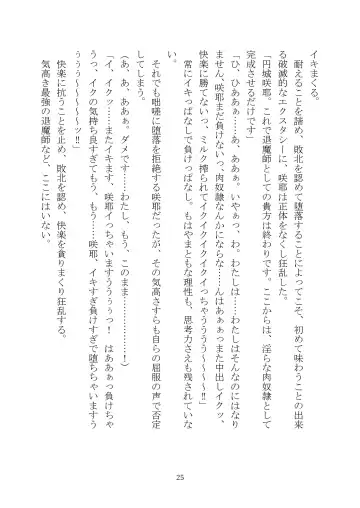 イキまくる。
耐えることを諦め、敗北を認めて堕落することによってこそ、初めて味わうことの出来
る破滅的なエクスタシーに、咲耶は正体をなくし狂乱した。
「円城咲耶。これで退魔師としての貴方は終わりです。ここからは、淫らな肉奴隷として
完成させるだけです」
「ひ、ひああぁ……あ、ああぁ。いやぁっ、わ。わたしは……わたしはそんなのにはなり
ません、咲耶まだ負けないっ、肉奴隷なんかにならな……んはあぁっまた中出しイクッ、
快楽に勝てないっ、ミルク搾られてイクイクイクイクイっちゃううう～～～～ッ‼」
常にイキっぱなしで負けっぱなし。もはやまともな理性も、思考力さえも残されていな
い。
それでも咄嗟に堕落を拒絶する咲耶だったが、その気高さすらも自らの屈服の声で否定
してしまう。
(あ、あ、ああぁ。ダメです……わたし、もう、このまま……………………！)
「イ、イクッ……またイキます、咲耶イっちゃいますううぅっ！　はああぁっ負けちゃ
うっ、イクの気持ち良すぎてもう、もう……咲耶、イキすぎ負けすぎで堕ちちゃいますう
ぅぅぅ～～～～～ッ‼」
快楽に抗うことを止め、敗北を認め、快楽を貪りまくり狂乱する。
気高き最強の退魔師など、ここにはいない。
25